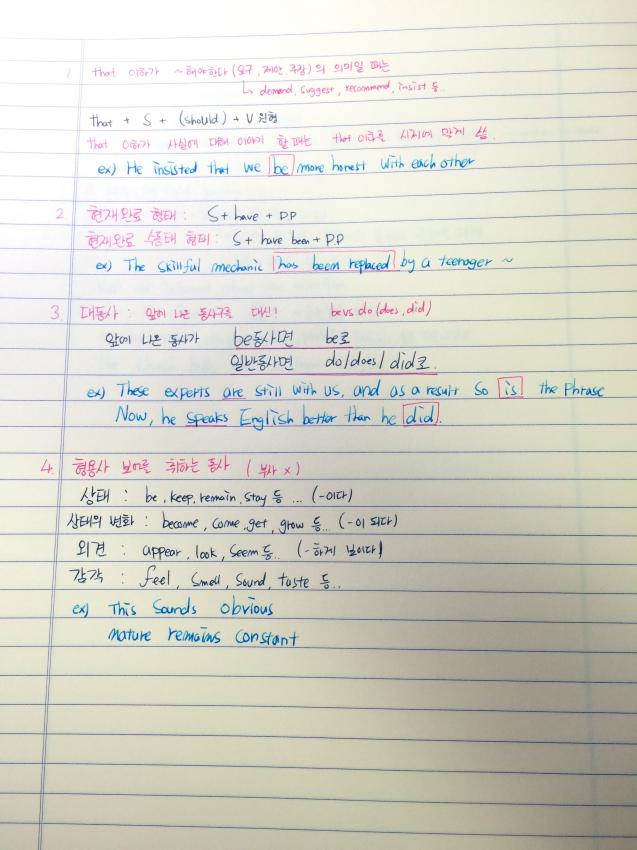 1 that 이하가 ~해야한다 (요구, 제안 주장)의 의미일 때는
↳ demand, suggest, recommend, insist 등.
that + S + (should) + V 원형
that 이하가 사실에 대해 이야기 할 때는 that 이후를 시제에 맞게 씀.
ex) He insisted that we be more honest with each other
2. 현재완료 형태 : S + have + P.P
현재완료 수동태 형태 : S + have been + P.P
ex) The skillful mechanic has been replaced by a teenager ~
3. 대동사 : 앞에 나온 동사구를 대신! be vs do (does, did)
앞에 나온 동사가 be동사면 be로
일반동사면 do/does/did로.
ex) These experts are still with us, and as a result so is the phrase
Now, he speaks English better than he did.
4. 형용사 보어를 취하는 동사 (부사 x)
상태 : be, keep, remain, stay 등 ... (-이다)
상태의 변화 : become, come, get, grow 등.. (-이 되다)
외견 : appear, look, seem 등.. (-하게 보이다)
감각 : feel, smell, sound, taste 등..
ex) This sounds obvious
nature remains constant